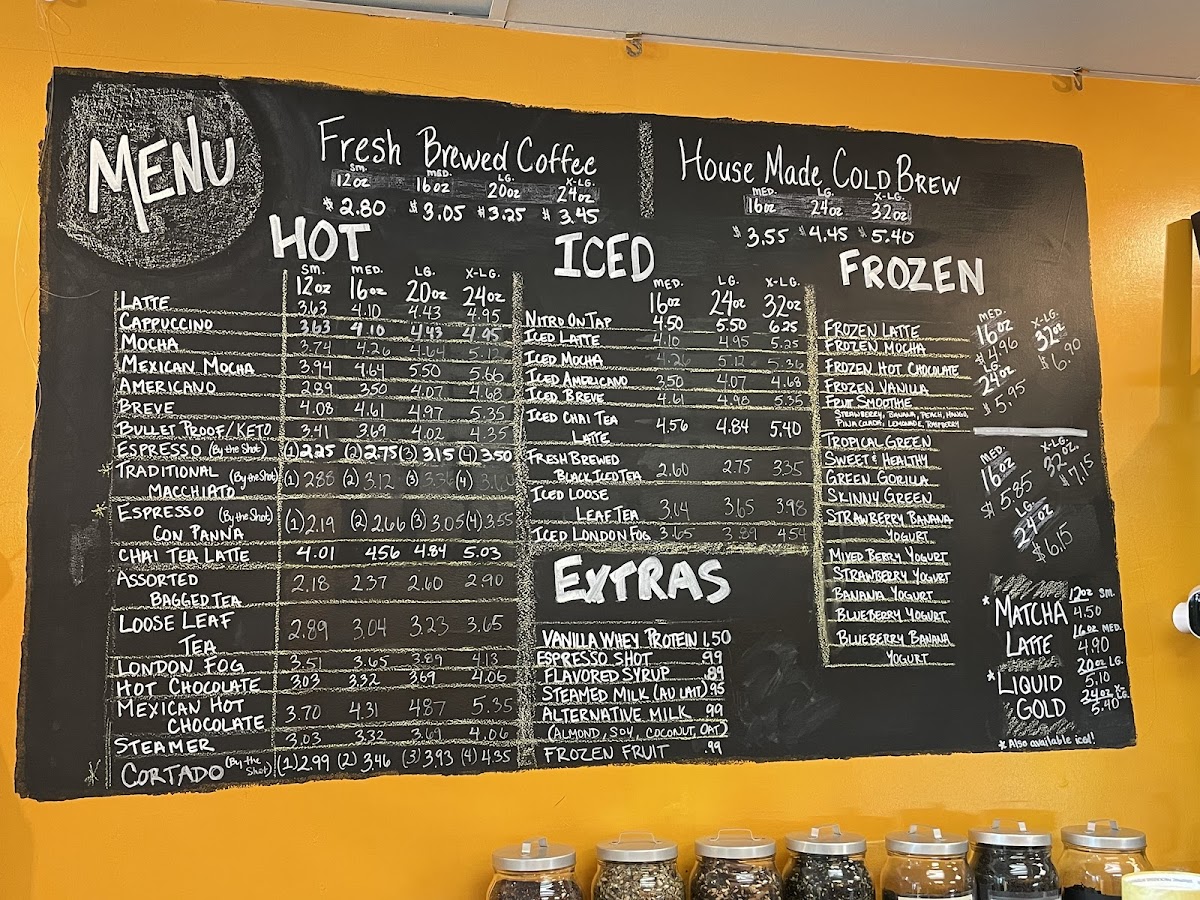 MENU
Fresh Brewed Coffee
SM. MED. LG. X-LG.
12oz 16oz 20oz 24oz
$2.80 $3.05 $3.25 $3.45
House Made Cold Brew
MED. LG. X-LG.
16oz 24oz 32oz
$3.55 $4.45 $5.40
HOT
SM. MED. LG. X-LG.
12oz 16oz 20oz 24oz
LATTE 3.63 4.10 4.43 4.95
CAPPUCCINO 3.63 4.10 4.43 4.95
MOCHA 3.74 4.26 4.64 5.12
MEXICAN MOCHA 3.94 4.64 5.50 5.66
AMERICANO 2.89 3.50 4.07 4.68
BREVE 4.08 4.61 4.97 5.35
BULLET PROOF/KETO 3.41 3.69 4.02 4.35
ESPRESSO (By the Shot) (1) 2.25 (2) 2.75 (3) 3.15 (4) 3.50
* TRADITIONAL (By the Shot) (1) 2.88 (2) 3.12 (3) 3.36 (4)
MACCHIATO
* ESPRESSO (By the Shot) (1) 2.19 (2) 2.66 (3) 3.05 (4) 3.55
CON PANNA
CHAI TEA LATTE 4.01 4.56 4.84 5.03
ASSORTED 2.18 2.37 2.60 2.90
BAGGED TEA
LOOSE LEAF 2.89 3.04 3.23 3.65
TEA
LONDON FOG 3.51 3.65 3.89 4.13
HOT CHOCOLATE 3.03 3.32 3.69 4.06
MEXICAN HOT 3.70 4.31 4.87 5.35
CHOCOLATE
STEAMER 3.03 3.32 3.69 4.06
* CORTADO (By the Shot) (1) 2.99 (2) 3.46 (3) 3.93 (4) 4.35
ICED
MED. LG. X-LG.
16oz 24oz 32oz
NITRO ON TAP 4.50 5.50 6.25
ICED LATTE 4.10 4.95 5.25
ICED MOCHA 4.26 5.12 5.36
ICED AMERICANO 3.50 4.07 4.68
ICED BREVE 4.61 4.98 5.35
ICED CHAI TEA 4.56 4.84 5.40
LATTE
FRESH BREWED 2.60 2.75 3.35
BLACK ICED TEA
ICED LOOSE 3.04 3.65 3.98
LEAF TEA
ICED LONDON FOG 3.65 3.89 4.54
EXTRAS
VANILLA WHEY PROTEIN 1.50
ESPRESSO SHOT .99
FLAVORED SYRUP .89
STEAMED MILK (AU LAIT) .95
ALTERNATIVE MILK .99
(ALMOND, SOY, COCONUT, OAT)
FROZEN FRUIT .99
FROZEN
FROZEN LATTE
FROZEN MOCHA
FROZEN HOT CHOCOLATE
FROZEN VANILLA
FRUIT SMOOTHIE
STRAWBERRY, BANANA, PEACH, MANGO,
PINA COLADA, LEMONADE, RASPBERRY
MED.
16oz
$4.96
LG.
24oz
$5.95
X-LG.
32oz
$6.90
TROPICAL GREEN
SWEET & HEALTHY
GREEN GORILLA
SKINNY GREEN
STRAWBERRY BANANA
YOGURT
MIXED BERRY YOGURT
STRAWBERRY YOGURT
BANANA YOGURT
BLUEBERRY YOGURT
BLUEBERRY BANANA
YOGURT
MED.
16oz
$5.85
LG.
24oz
$6.15
X-LG.
32oz
$7.15
* MATCHA
LATTE
* LIQUID
GOLD
12oz SM.
4.50
16oz MED.
4.90
20oz LG.
5.10
24oz X-LG.
5.40
* Also available iced!